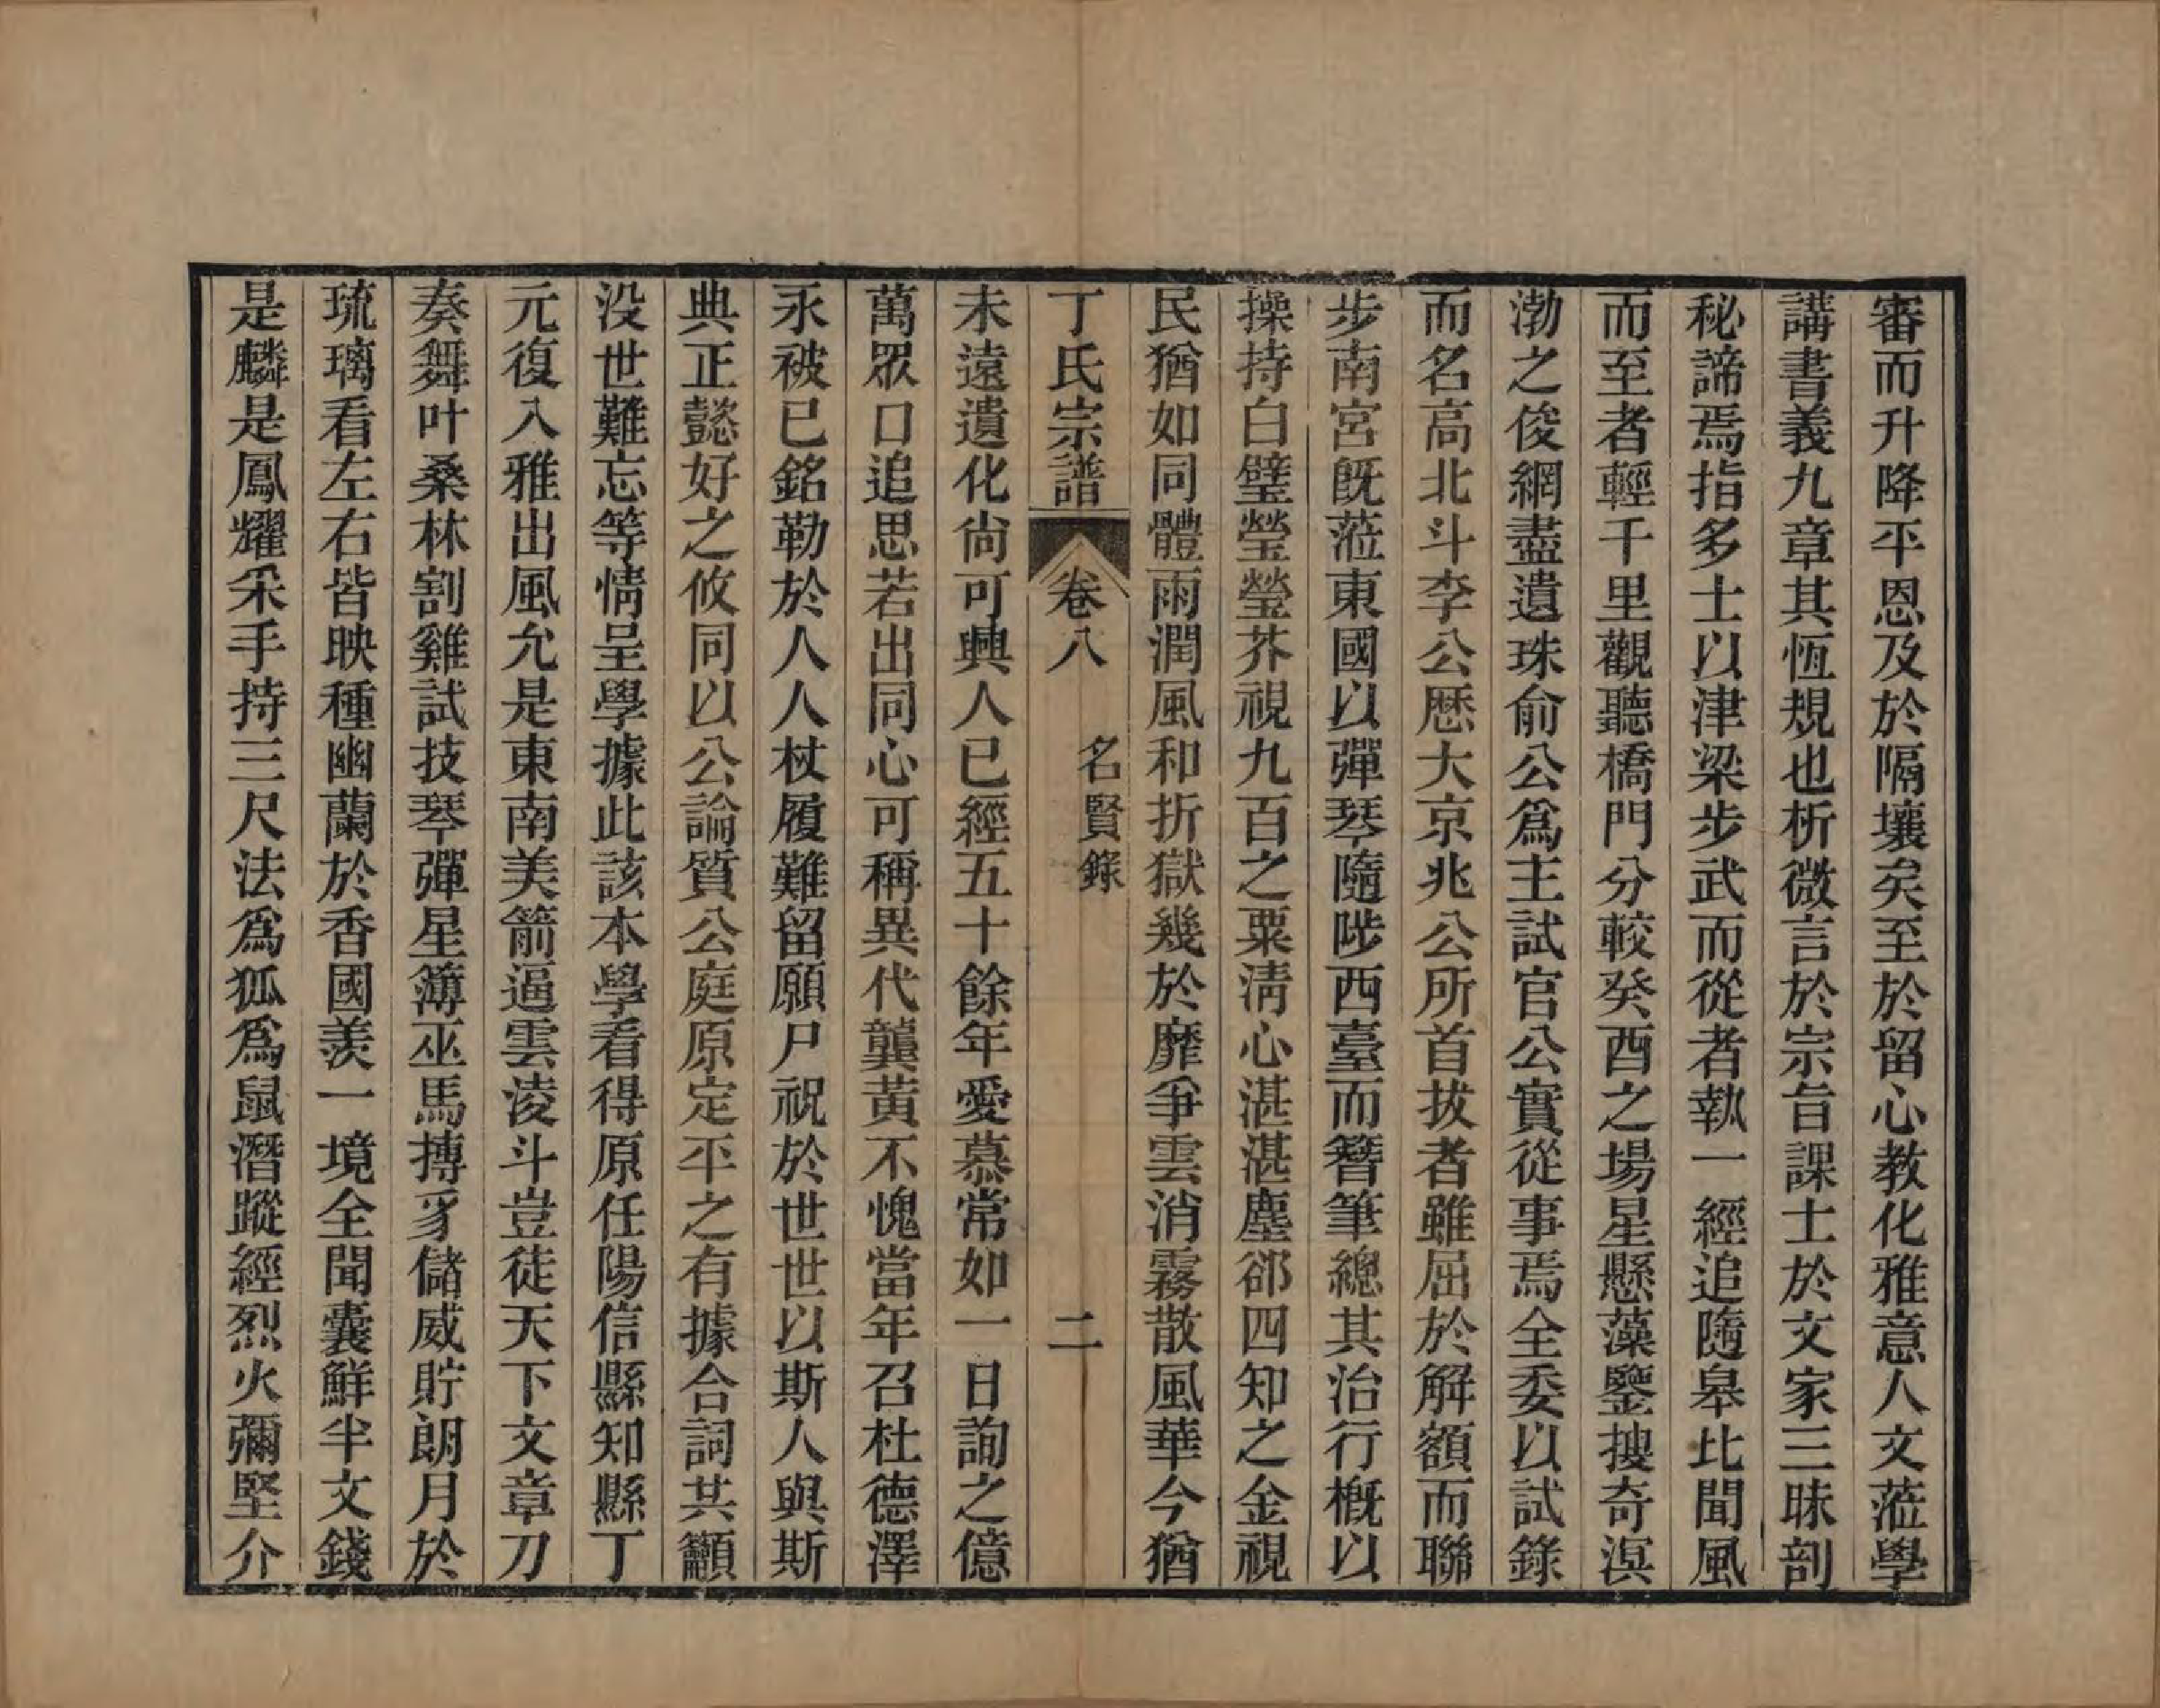 審而升降平恩及於隔壤矣至於留心教化雅意人文蒞學
講書義九章其恆規也析微言於宗旨課士於文家三昧剖
秘諦焉指多士以津梁步武而從者執一經追隨皋比聞風
而至者輕千里觀聽橋門分較癸酉之場星懸藻鑒搜奇溟
渤之俊網盡遺珠俞公爲主試官公實從事焉全委以試錄
而名高北斗李公歷大京兆公所首拔者雖屈於解額而聯
步南宮旣蒞東國以彈琴隨陟西臺而簪筆總其治行槪以
操持白璧瑩瑩芥視九百之粟淸心湛湛塵郤四知之金視
民猶如同體雨潤風和折獄幾於靡爭雲消霧散風華今猶
丁氏宗譜 卷八 名賢錄 二
未遠遺化尙可興人已經五十餘年愛慕常如一日詢之億
萬眾口追思若出同心可稱異代龔黃不愧當年召杜德澤
永被已銘勒於人人杖履難留願尸祝於世世以斯人與斯
典正懿好之攸同以公論質公庭原定平之有據合詞共籲
沒世難忘等情呈學據此該本學看得原任陽信縣知縣丁
元復入雅出風允是東南美箭逼雲凌斗豈徒天下文章刀
奏舞叶桑林割雞試技琴彈星簿巫馬摶豸儲威貯朗月於
琉璃看左右皆映種幽蘭於香國羨一境全聞囊鮮半文錢
是麟是鳳耀采手持三尺法爲狐爲鼠潛蹤經烈火彌堅介